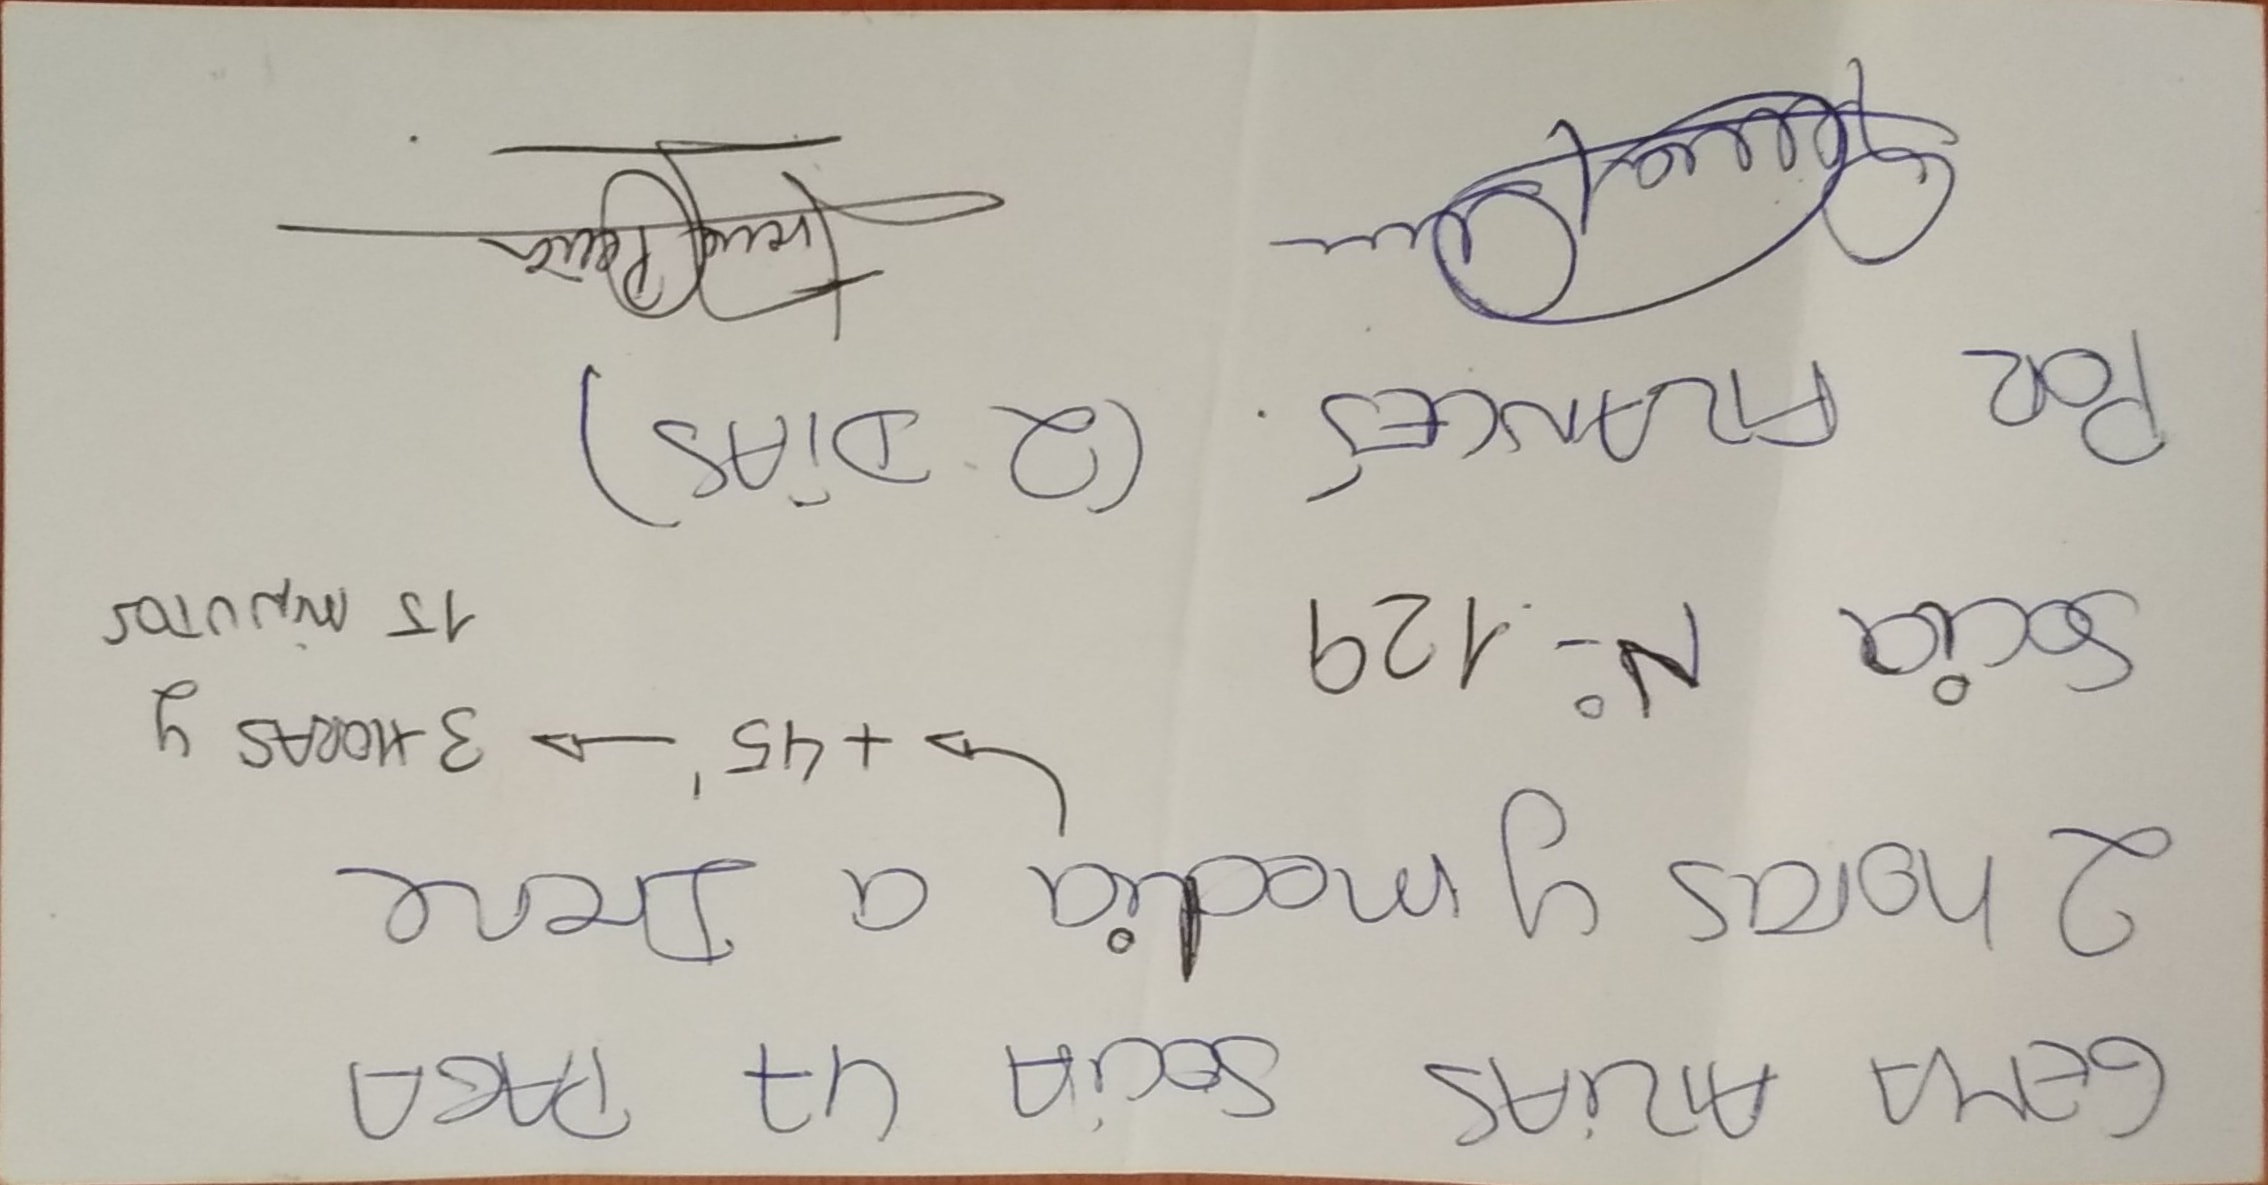 GEMA ARIAS SOCIA 47 PAGA
2 horas y media a Irene
+45' → 3 HORAS y
15 MINUTOS
Socia Nº 129
POR FRANCÉS. (2 DÍAS)
Gema
Irene Peña